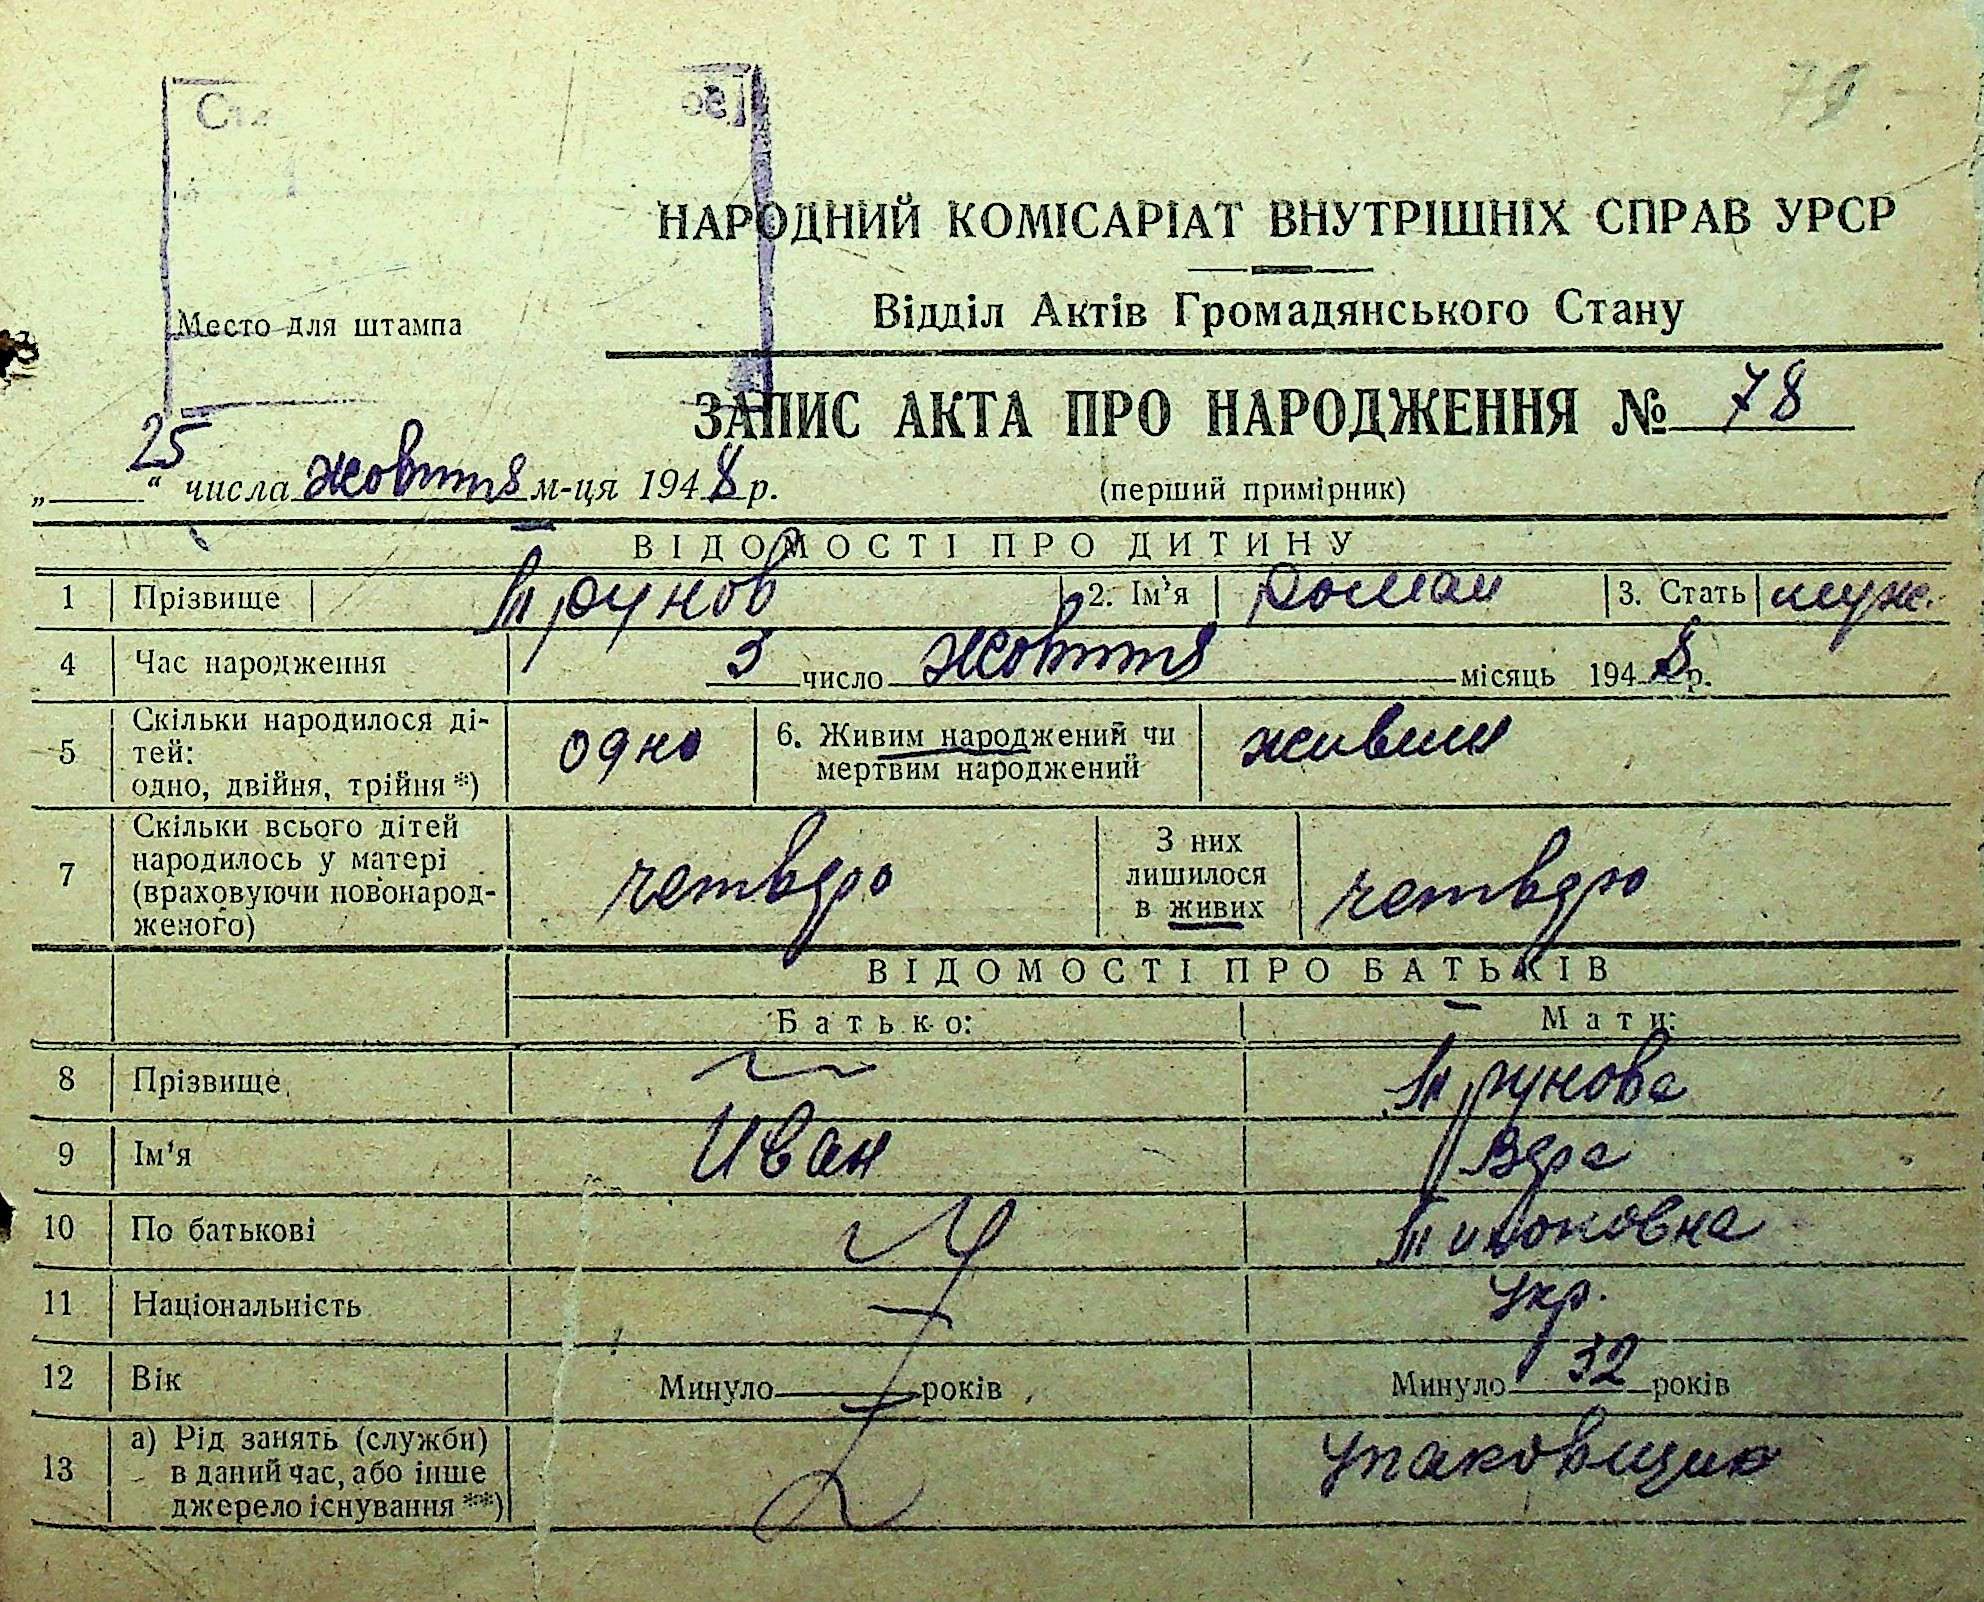 79
НАРОДНИЙ КОМІСАРІАТ ВНУТРІШНІХ СПРАВ УРСР
Відділ Актів Громадянського Стану
Место для штампа
ЗАПИС АКТА ПРО НАРОДЖЕННЯ № 78
„25“ числа жовтня м-ця 1948 р.
(перший примірник)
ВІДОМОСТІ ПРО ДИТИНУ
1 Прізвище Трунов 2. Ім'я Роман 3. Стать муж.
4 Час народження 3 число жовтня місяць 1948 р.
5 Скільки народилося ді-
тей:
одно, двійня, трійня *) одно 6. Живим народжений чи
мертвим народжений живим
7 Скільки всього дітей
народилось у матері
(враховуючи новонарод-
женого) четверо З них
лишилося
в живих четверо
ВІДОМОСТІ ПРО БАТЬКІВ
Батько: Мати:
8 Прізвище Трунова
9 Ім'я Иван Вера
10 По батькові
11 Національність Укр.
12 Вік Минуло років Минуло 32 років
13 а) Рід занять (служби)
в даний час, або інше
джерело існування **) Упаковщик